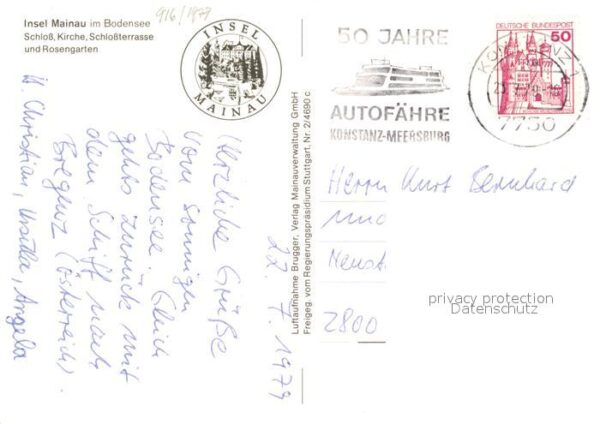 Insel Mainau im Bodensee
Schloß, Kirche, Schloßterrasse
und Rosengarten
916/1977
INSEL
MAINAU
22. 7. 1979
Herzliche Grüße
vom sonnigen
Bodensee. Gleich
gehts zurück mit
dem Schiff nach
Bregenz (Österreich).
Christian, Ursula, Angela
Luftaufnahme Brugger, Verlag Mainauverwaltung GmbH
Freigeg. vom Regierungspräsidium Stuttgart, Nr. 2/4690 c
50 JAHRE
AUTOFÄHRE
KONSTANZ-MEERSBURG
KONSTANZ 1
7750
DEUTSCHE BUNDESPOST
50
Herrn Kurt Bernhard
und
Neust
2800
privacy protection
Datenschutz